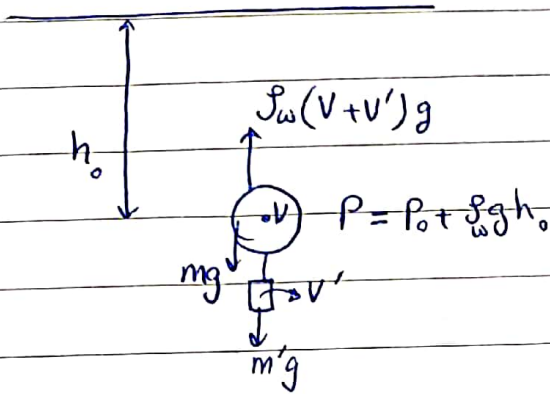 ρω(V+V')g
h₀
.V
P = P₀ + ρωgh₀
mg
V'
m'g